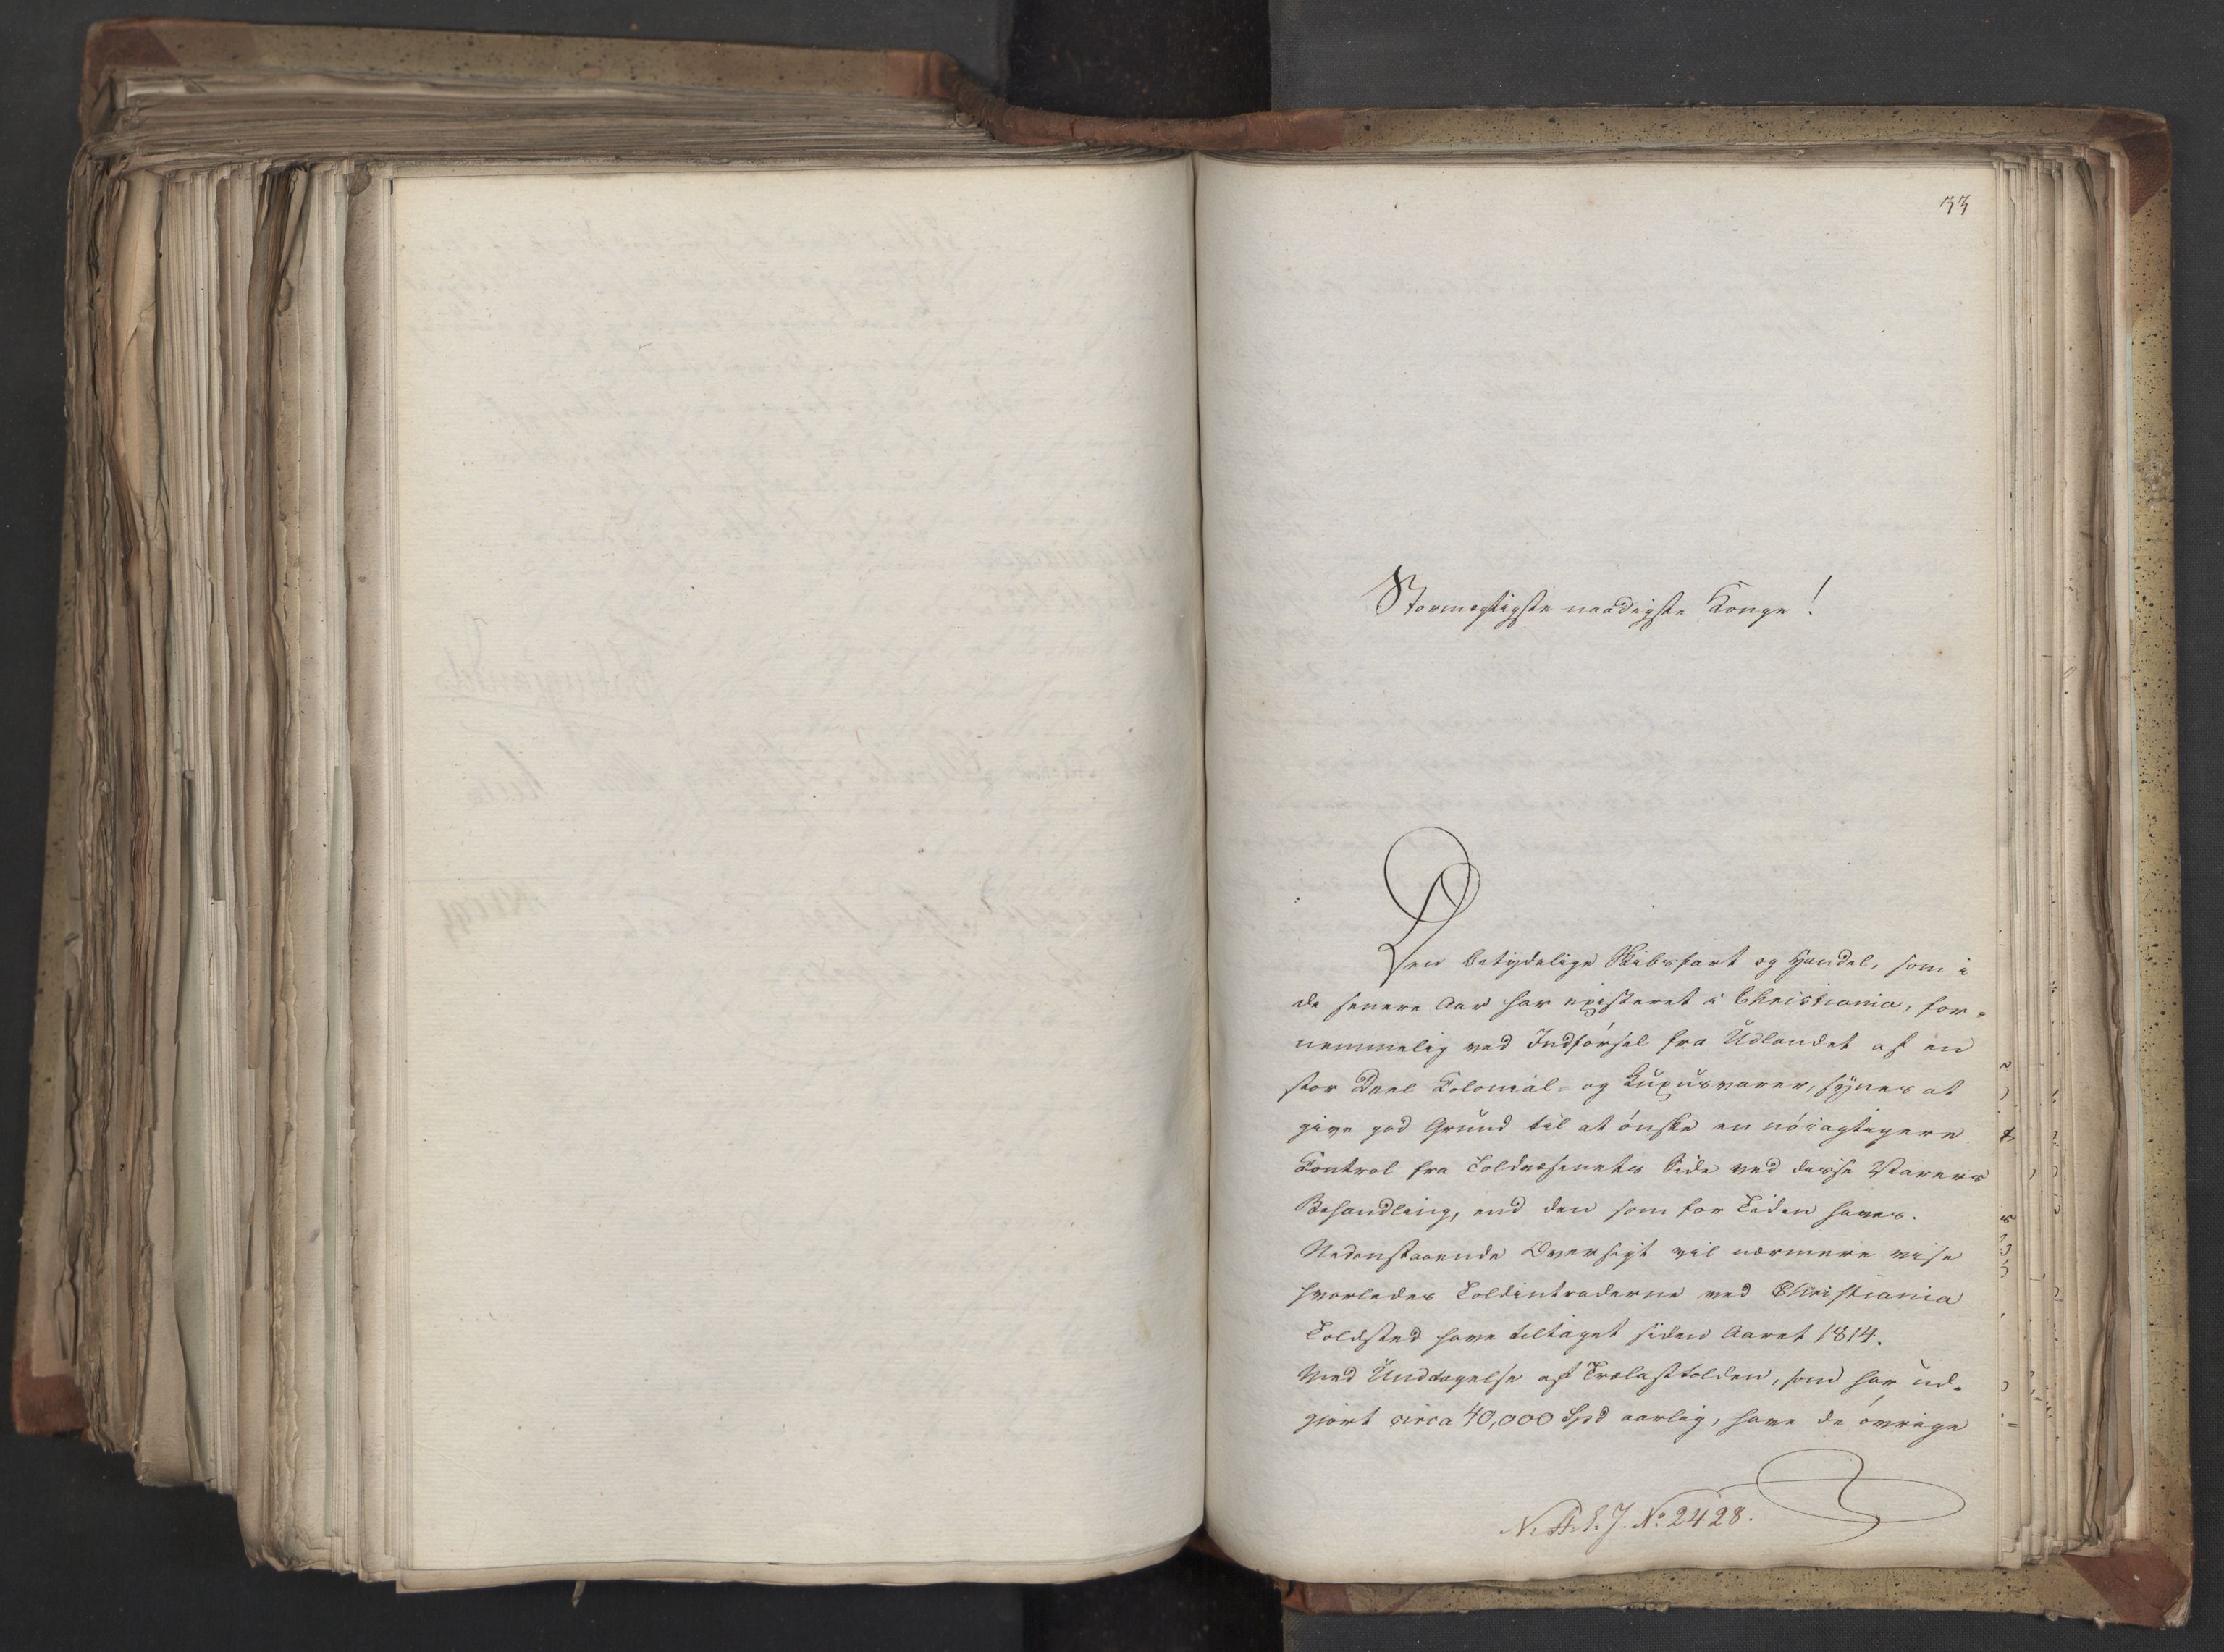 33
Stormægtigste naadigste Konge!
Den betydelige Skibsfart og Handel, som i
de senere Aar har existeret i Christiania, for-
nemmelig ved Indförsel fra Udlandet af en
stor Deel Colonial- og Luxusvarer, synes at
give god Grund til at önske en nöiagtigere
Control fra Toldvæsenets Side ved disse Varers
Behandling, end den som for Tiden haves.
Nedenstaaende Oversigt vil nærmere vise
hvorledes Toldintraderne ved Christiania
Toldsted have tiltaget siden Aaret 1814.
Med Undtagelse af Trælasttolden, som har ud-
giort circa 40,000 Spd aarlig, have de övrige
No 2428.